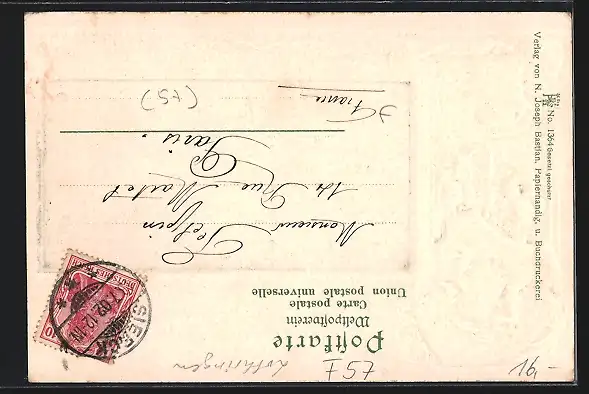 Postkarte
Weltpostverein
Carte postale
Union postale universelle
Monsieur
Rue
Paris.
France
(75)
DEUTSCHES REICH
10
SIERCK
No. 1364 Gesetzl. geschützt
Verlag von N. Joseph Bastian, Papierhandlg. u. Buchdruckerei
Lothringen
F 57
16,-